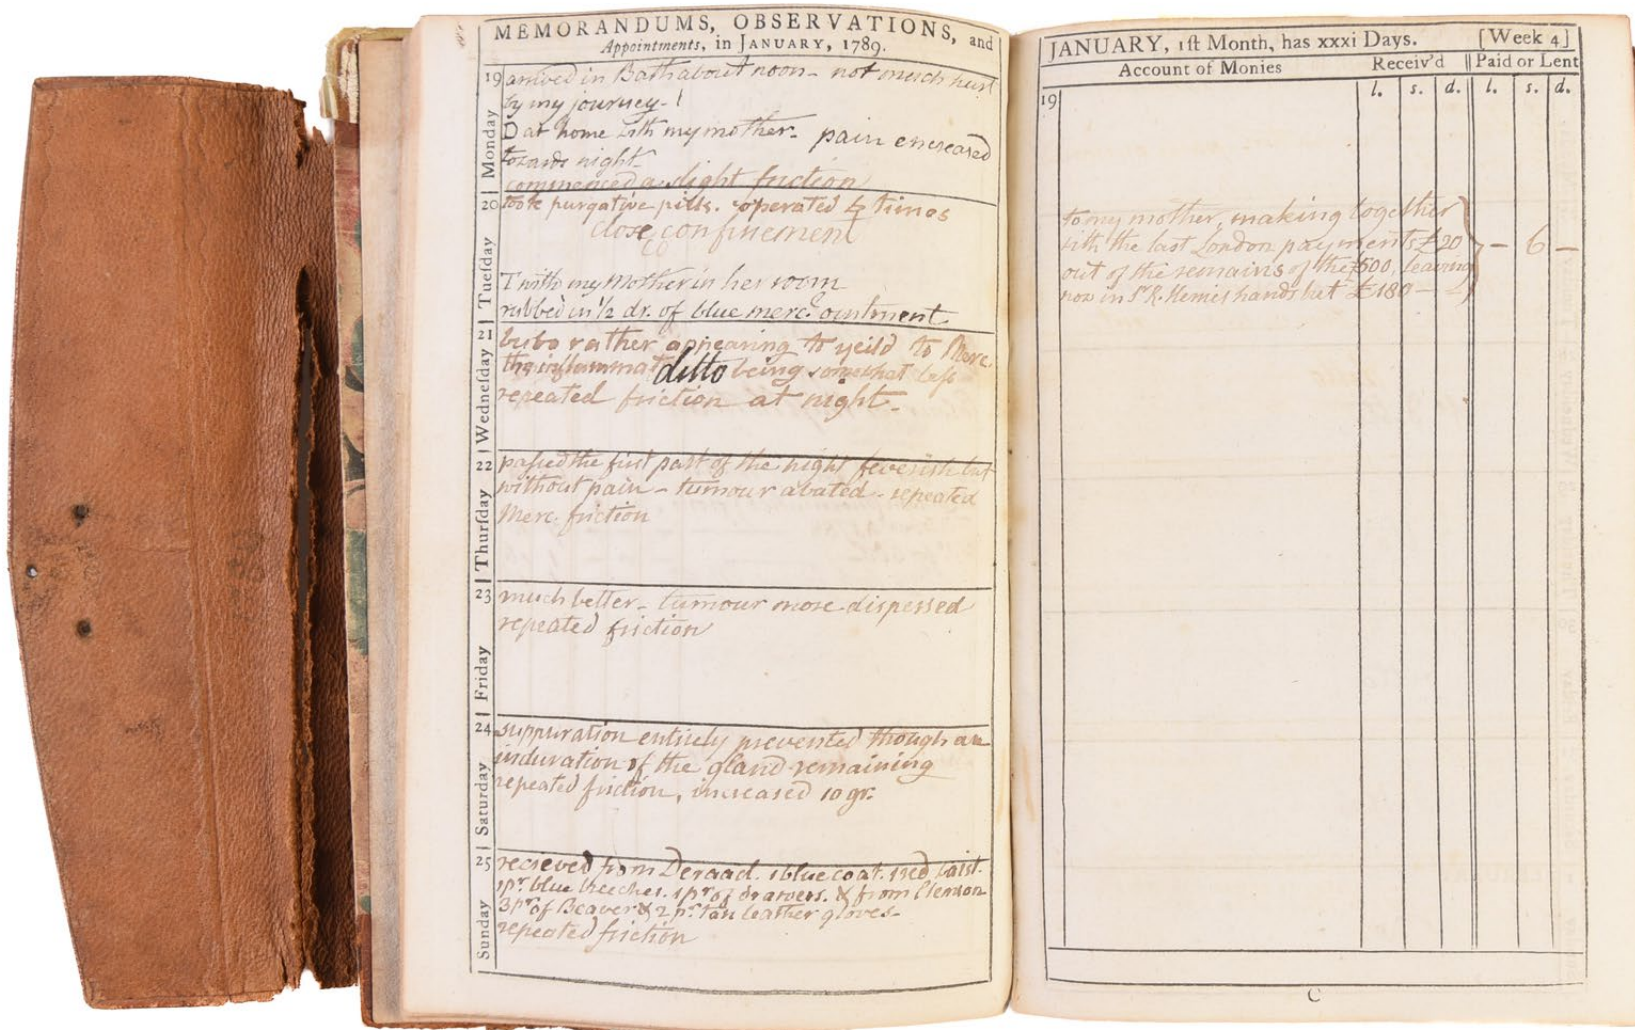 MEMORANDUMS, OBSERVATIONS, and
Appointments, in JANUARY, 1789.
19 Monday
arrived in Bath about noon - not much hurt
by my journey -
D at home with my mother - pain encreased
towards night -
commenced a slight friction
20 Tuesday
took purgative pills. operated 4 times
close confinement
T with my Mother in her room
rubbed in 1/2 dr. of blue merc. ointment
21 Wednesday
bubo rather appearing to yeild to Merc.
the inflammat ditto being somewhat less
repeated friction at night -
22 Thurſday
paſsed the first part of the night feverish but
without pain - tumour abated - repeated
Merc. friction
23 Friday
much better - tumour more dispersed
repeated friction
24 Saturday
suppuration entirely prevented though an
induration of the gland remaining
repeated friction, increased 10 gr.
25 Sunday
recieved from Deraad. 1 blue coat. 1 red waist.
1 pr. blue breeches. 1 pr of drawers. & from
3 pr of Beaver & 2 pr. tan leather gloves -
repeated friction
JANUARY, 1ſt Month, has xxxi Days. [Week 4]
Account of Monies Receiv'd Paid or Lent
l. s. d. l. s. d.
19
to my mother, making together
with the last London payments £20
out of the remains of the £500, leaving
now in Sr. R. hands but £180 -
- 6 -
C